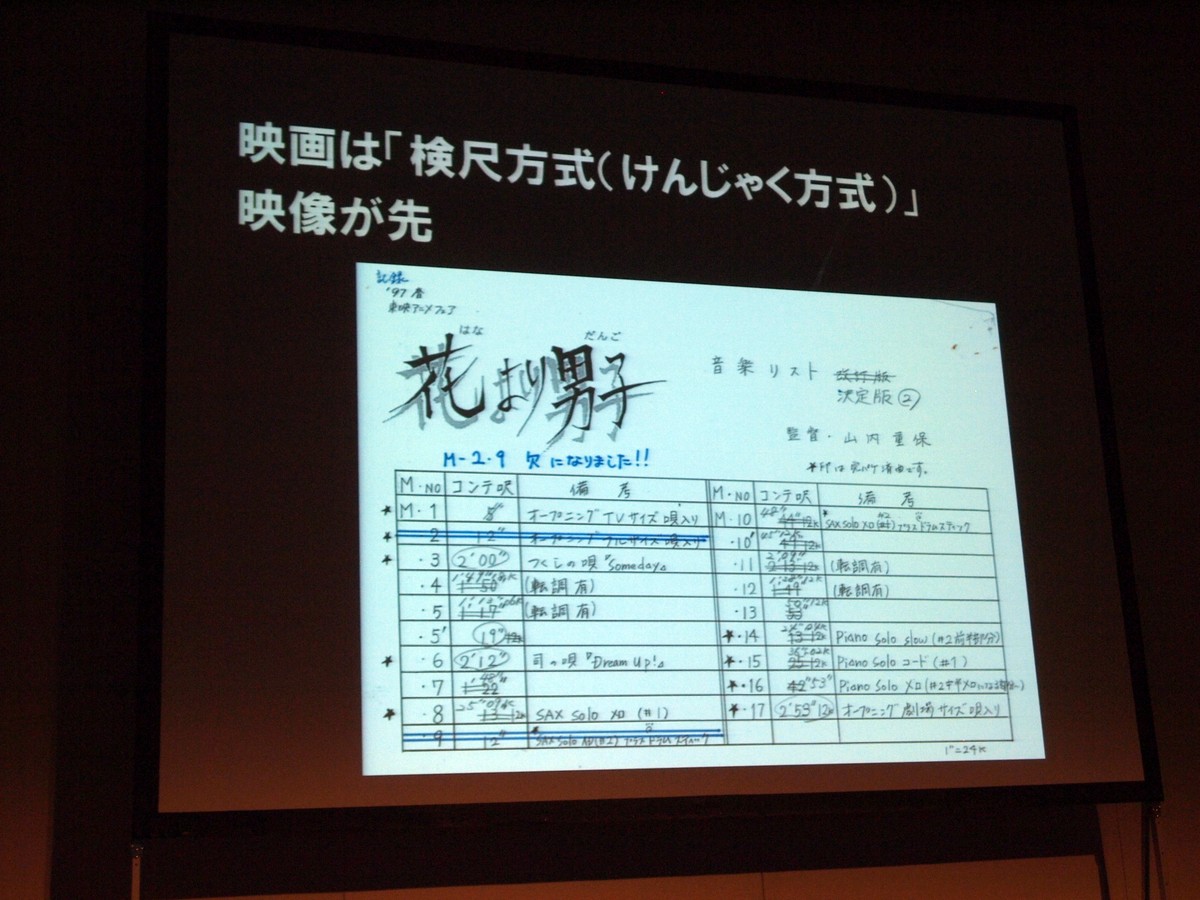 映画は「検尺方式(けんじゃく方式)」
映像が先
記録
'97 春
東映アニメフェア
はな だんご
花より男子
音楽リスト 改訂版
決定版②
監督・山内重保
M-2・9 欠になりました!!
M・NO コンテ呎 備考
★ M・1 オープニング TVサイズ 唄入り
★ ・2 12" オープニング フルサイズ 唄入り
★ ・3 2'00" つくしの唄『Someday』
・4 (転調有)
・5 1'17" (転調有)
・5' 19"
★ ・6 2'12" 司の唄『Dream Up!』
・7
★ ・8 SAX Solo メロ (#1)
・9 12" SAX Solo メロ(#2) プラスドラムスティック
M・NO コンテ呎 備考
M・10 SAX Solo メロ プラスドラムスティック
・10'
・11 (転調有)
・12 (転調有)
・13
★・14 Piano Solo slow (#2前半部分)
★・15 Piano Solo コード (#1)
★・16 Piano Solo メロ
★・17 2'53"12K オープニング 劇場サイズ唄入り
1"=24K